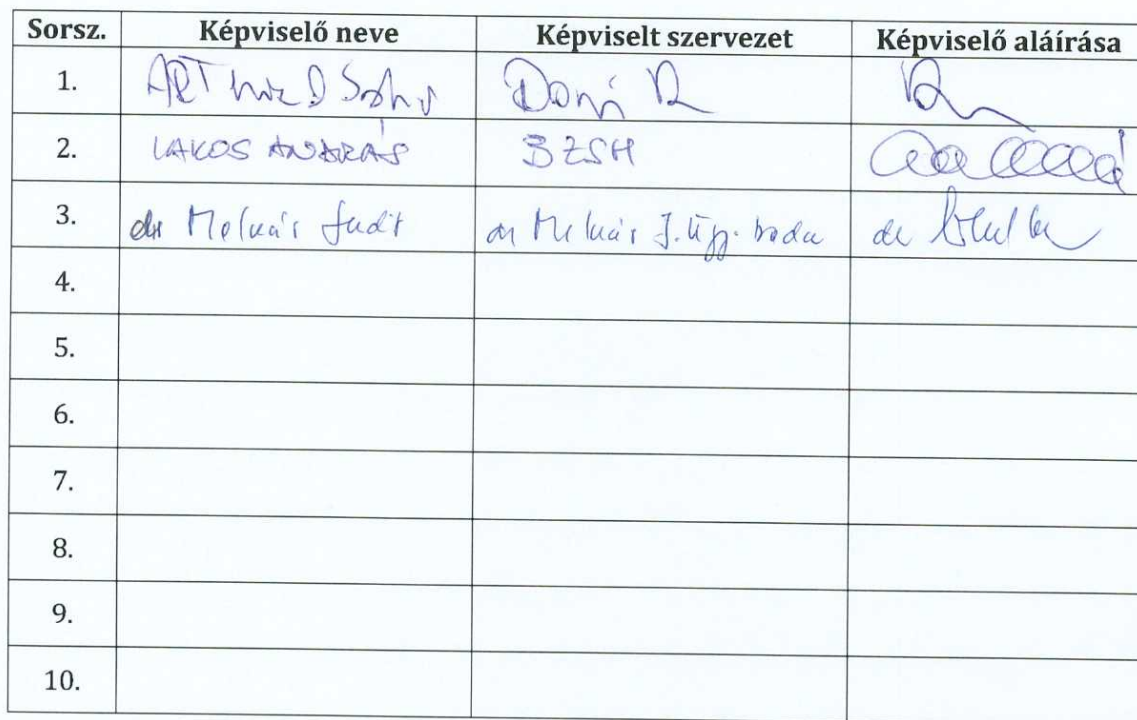 Sorsz. Képviselő neve Képviselt szervezet Képviselő aláírása
1.
2. LAKOS ANDRÁS BZSH
3. dr Molnár Judit dr Molnár J. Ügy. iroda dr
4.
5.
6.
7.
8.
9.
10.